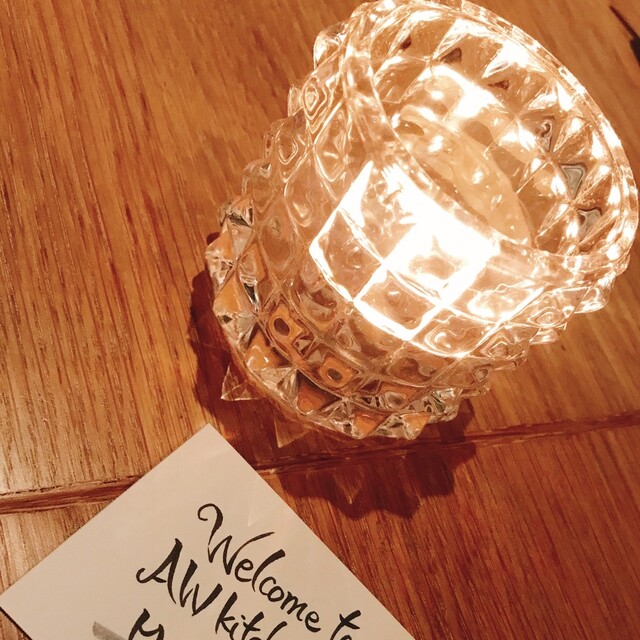 Welcome to
AW kitch